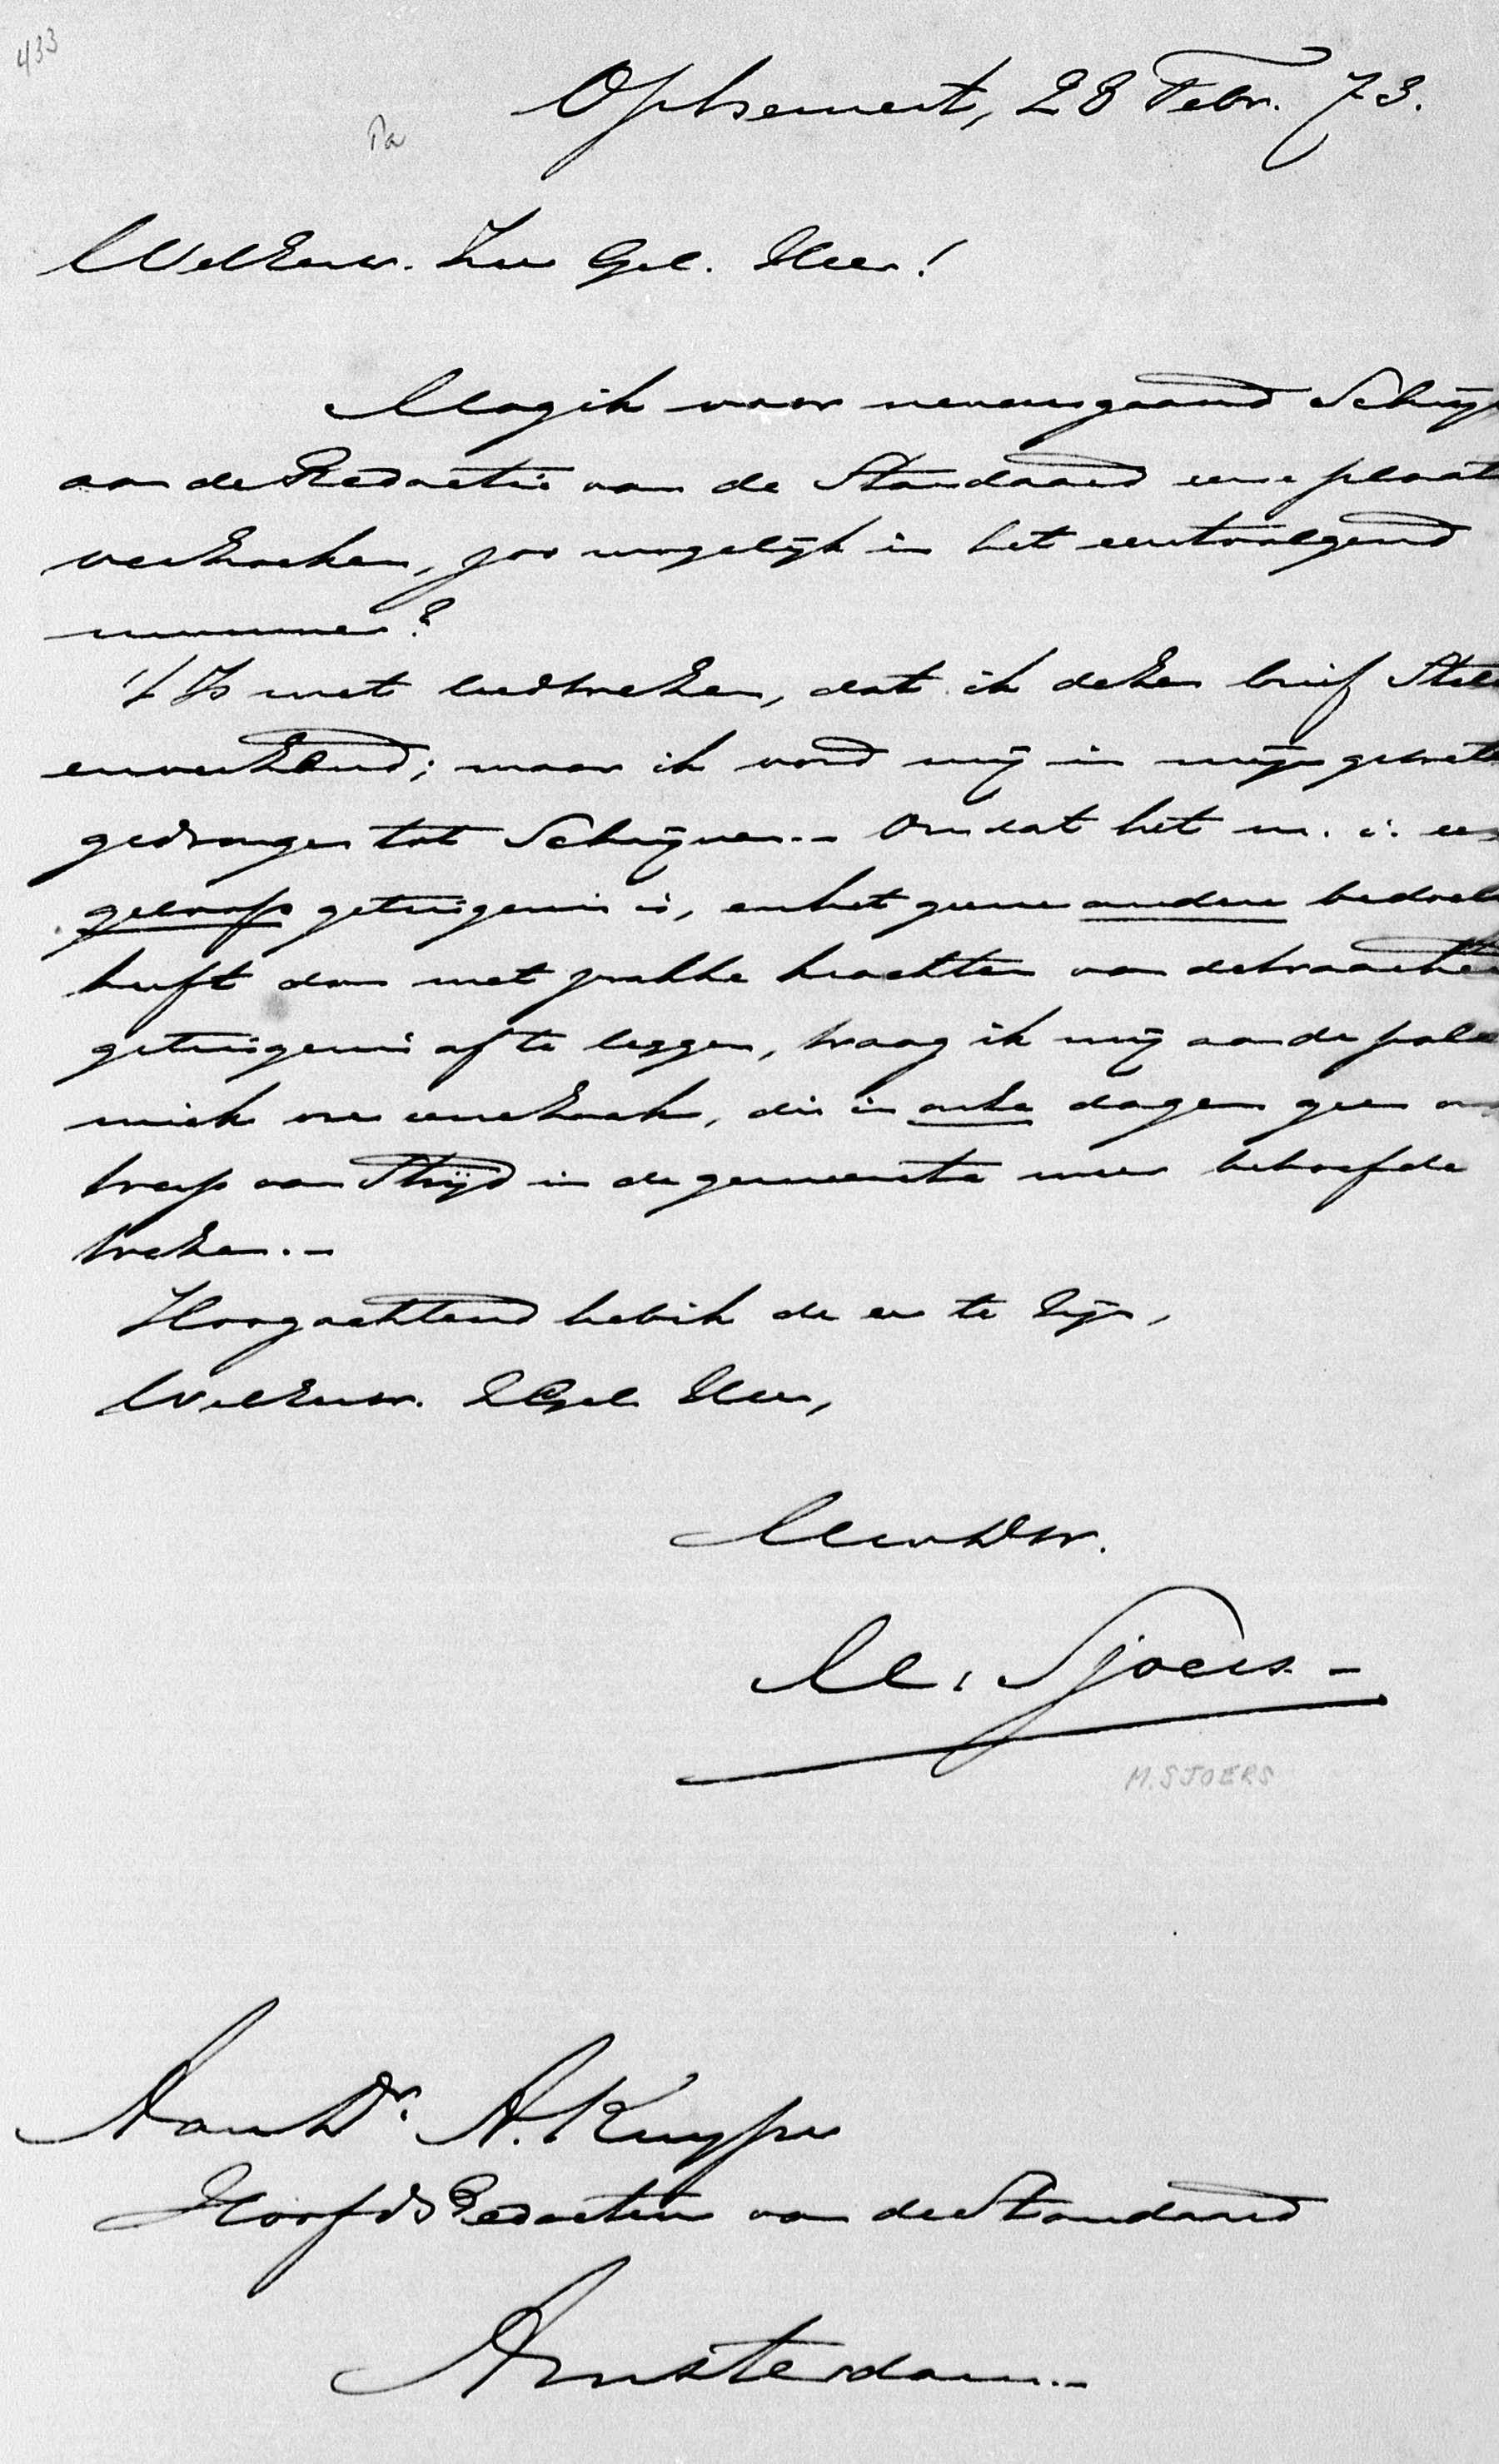 433
Ophemert, 28 Febr. 73.
Pa
WelEerw. Zeer Gel. Heer!
Mag ik voor nevensgaand Schrij
aan de Redactie van de Standaard eene plaat
verzoeken, zoo mogelijk in het eerstvolgend
nummer?
't Is met leedwezen, dat ik dezen brief
; maar ik word mij in mijn gewet
gedrongen tot Schrijven.– Omdat het m. i. een
geloofs getuigenis is, en het geene andere bedoel
heeft dan met zwakke krachten van de waarheid
getuigenis af te leggen, waag ik mij aan de pole
miek over eene zaak, die in onze dagen geen on
werp van Strijd in de gemeente meer behoefde
te wezen.–
Hoogachtend heb ik de eer te zijn,
WelEerw. ZGel Heer,
UEwDw.
M. Sjoers.–
M. SJOERS
Aan Dr. A. Kuyper
HoofdRedacteur van de Standaard
Amsterdam.–